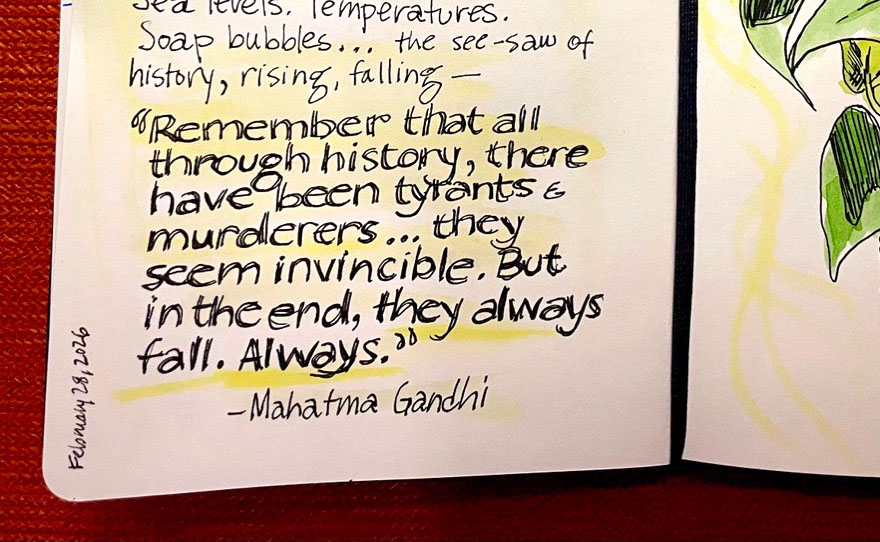 Sea levels. Temperatures.
Soap bubbles... the see-saw of
history, rising, falling —
"Remember that all
through history, there
have been tyrants &
murderers... they
seem invincible. But
in the end, they always
fall. Always."
—Mahatma Gandhi
February 28, 2026